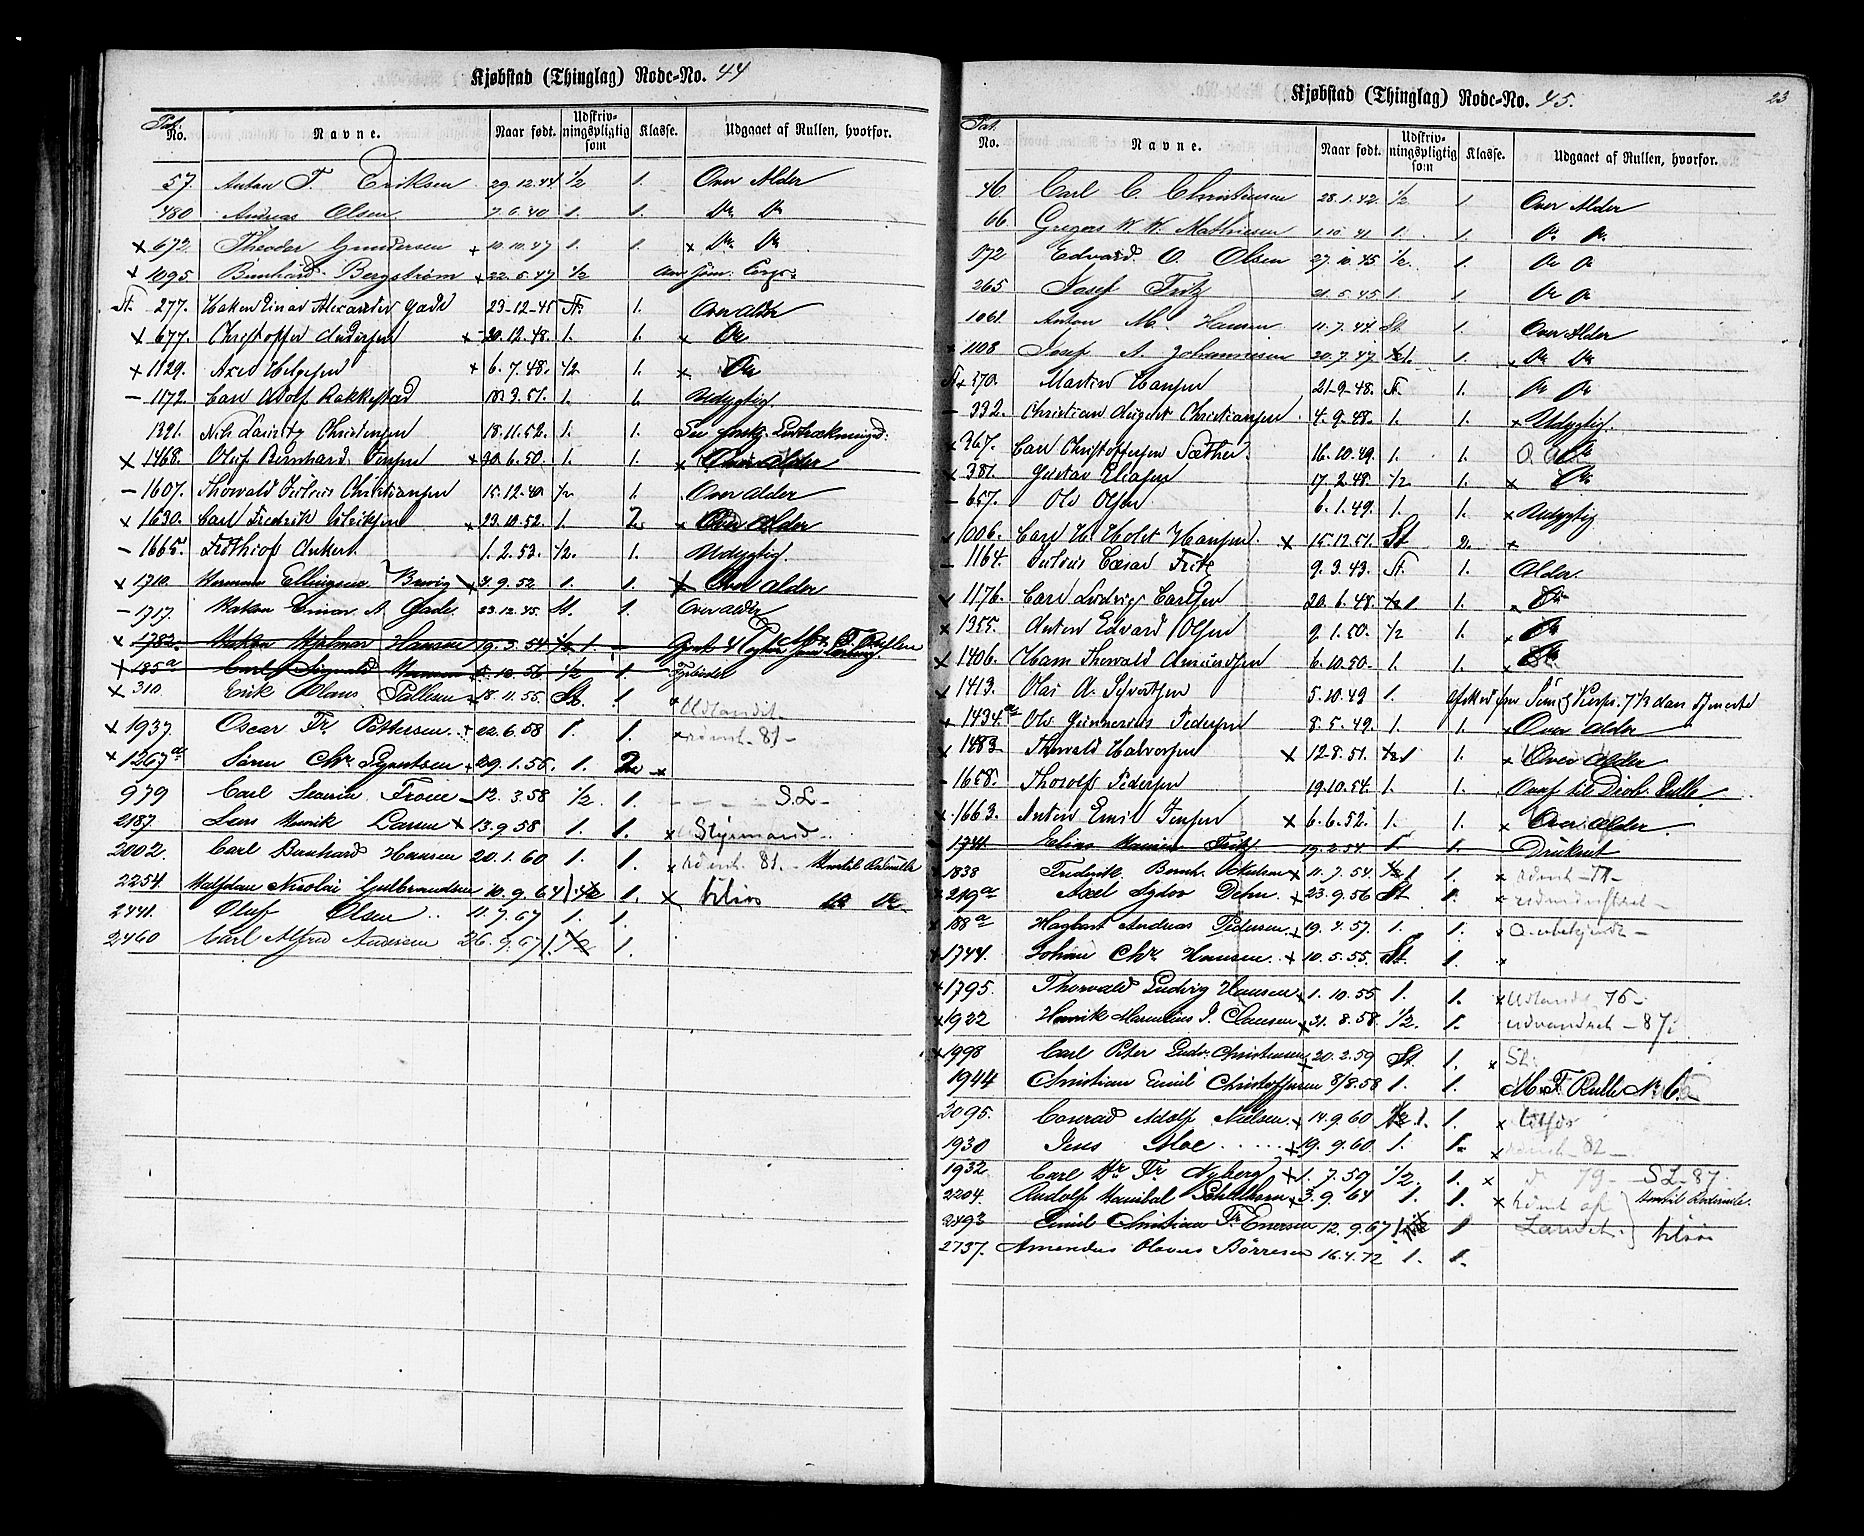 Kjøbstad (Thinglag) Rode-No. 44
Pat. No. Navne. Naar født. Udskrivningspligtig som Klasse. Udgaaet af Rullen, hvorfor.
57. Anton T. Eriksen 29.12.44 1/2 1. Over Alder
480 Andreas Olsen 7.6.40 1. 1. Do Do
x 672. Theodor Gundersen x 10.10.47 1. 1. x Do Do
x 1095 Bernhard Bergstrøm x 22.5.47 1/2
St. 277. Haken Einar Alexander Gade 23-12-45 St. 1. Over alder
x 677. Christoffer Andersen x 30.12.48. 1. 1. x Do
x 1129. Axel Helgesen x 6.7.48. 1/2 1. x Do
- 1172. Carl Adolf Rakkestad 3.51. 1. 1. Udygtig.
1321. Nils Lauritz Christensen 18.11.52. 1. 1.
x 1468. Oluf Bernhard Jensen x 30.6.50. 1. 1. x Over alder
- 1607. Thorvald Julius Christiansen 15.12.49 1/2 1. Over alder
x 1630. Carl Fredrik Eriksen x 23.10.52. 1. 2. x Over alder
- 1665. Frithiof Ankert 1.2.53. 1/2. 1. Udygtig.
x 1710. Herman Ellingsen Bervig x 4.9.52. 1. 1. x Over alder
- 1717. Haken Einar A. Gade. 23.12.45. St. 1. Over alder
x 1782. Haken Hjalmar Hansen 19.3.54 1/2 1
x 185a Carl Sigvald Hansen 5.10.56 1/2 1
x 310. Erik Claus Pallesen x 18.11.55. St. 1 x Udlandet
x 1937. Oscar Fr. Pettersen x 22.6.58 1. 1. x rømt - 81 -
x 1267a Søren Chr. Syvertsen x 29.1.56. 1. 2 x
979 Carl Severin 12.3.58 1/2 1. S.L -
2187 Lars Henrik Larsen x 13.9.58 1. 1. x Styrmand
2002. Carl Bernhard Hansen 20.1.60 1. 1. x rømt 81. -
2254. Halfdan Nicolai Gulbrandsen 10.9.64 1. 1/2 1. x
2441. Oluf Olsen 11.7.67 1. 1.
2460 Carl Alfred Andersen 26.9.67 1. 1/2 1.
23
Kjøbstad (Thinglag) Rode-No. 45.
Pat. No. Navne. Naar født. Udskrivningspligtig som Klasse. Udgaaet af Rullen, hvorfor.
46. Carl C. Christensen 28.1.42. 1/2 1. Over Alder
66. Gregers W. W. Mathiesen 1.10.41 1. 1. Do Do
572 Edvard O. Olsen 27.10.45 1/2. 1. Do Do
265 Josef Fritz 21.5.45 1. 1. Do Do
1061. Anton M. Hansen 11.7.44 St. 1. Over Alder
x 1108 Josef A. Johannesen 20.7.47 1/2 1. 1. x Do Do
St. x 370. Martin Hansen 21-9-48. St. 1. Do Do
- 332. Christian August Christiansen 4.9.48. 1. 1. x Udygtig.
x 367. Carl Christoffersen Sæther. 16.10.49. 1. 1.
x 381. Gustav Eliasen 17.2.48. 1/2 1. x Do
- 657. Ole Olsen 6.1.49. 1. 1. x Udygtig
x 1006. Carl H. Holst Hansen. x 15.12.51. St 2. x
- 1164. Julius Cæsar Fritz 9.3.43. St. 1. Alder.
x 1176. Carl Ludvig Carlsen 20.6.48. 1/2 1 1. x Do
x 1355. Anton Edvard Olsen 9.1.50. 1/2 1. x Do
x 1406. Hans Thorvald Amundsen 6.10.50. 1. 1. x Do
x 1413. Olai A. Syvertsen 5.10.49 1.
x 1434.a Ole Gunnerius Pedersen 8.5.49. 1. 1. x Over alder
x 1483. Thorvald Halvorsen x 12.8.51. 1/2 1 1. x Over alder
- 1658. Thorolf Pedersen 19.10.54. 1. 1. Overf. til Distr. Rulle.
x 1663. Anton Emil Jensen x 6.6.52. 1. 1. x Over alder.
- 1741. Elias Fritz 19.2.54. 1 1. Druknet
x 1838 Fredrik Bernh. Nielsen x 11.7.54. 1/2 1 1. x
x 219a Axel Sydow Dehn x 23.9.56 St 1. x
x 188a Hagbart Andreas Pedersen x 19.4.57. 1. 1. x
x 1744. Johan Chr. Hansen. x 10.5.55. St. 1. x
x 1795. Thorvald Ludvig Hansen x 1.10.55 1. 1. x Udlandet 75 -
x 1922 Henrik Marentius J. Clausen x 31.8.58. 1/2. 1. udvandret - 87
x 1998 Carl Peter Ludv. Christensen 20.2.59 St 1. x St.
1944 Christian Emil Christoffersen 8/8.58 1. 1. M.F. Rulle No 6
2095. Conrad Adolf Nielsen x 14.9.60 1/2 1. 1. x
1930 Jens Moe x 19.9.60. 1. 1. x rømt - 82 -
1932 Carl Hr. Fr. Nyberg x 1.7.59 1/2. 1. x do 79 - S.L-87.
2204. Rudolf Hanibal x 3.9.64 1. 1. x rømt af
2493 Emil Christian Fr. Enersen 12.9.67 1. 1/2 1 Landet.
2737. Amandus Olavus Børresen 16.4.72 1. 1.